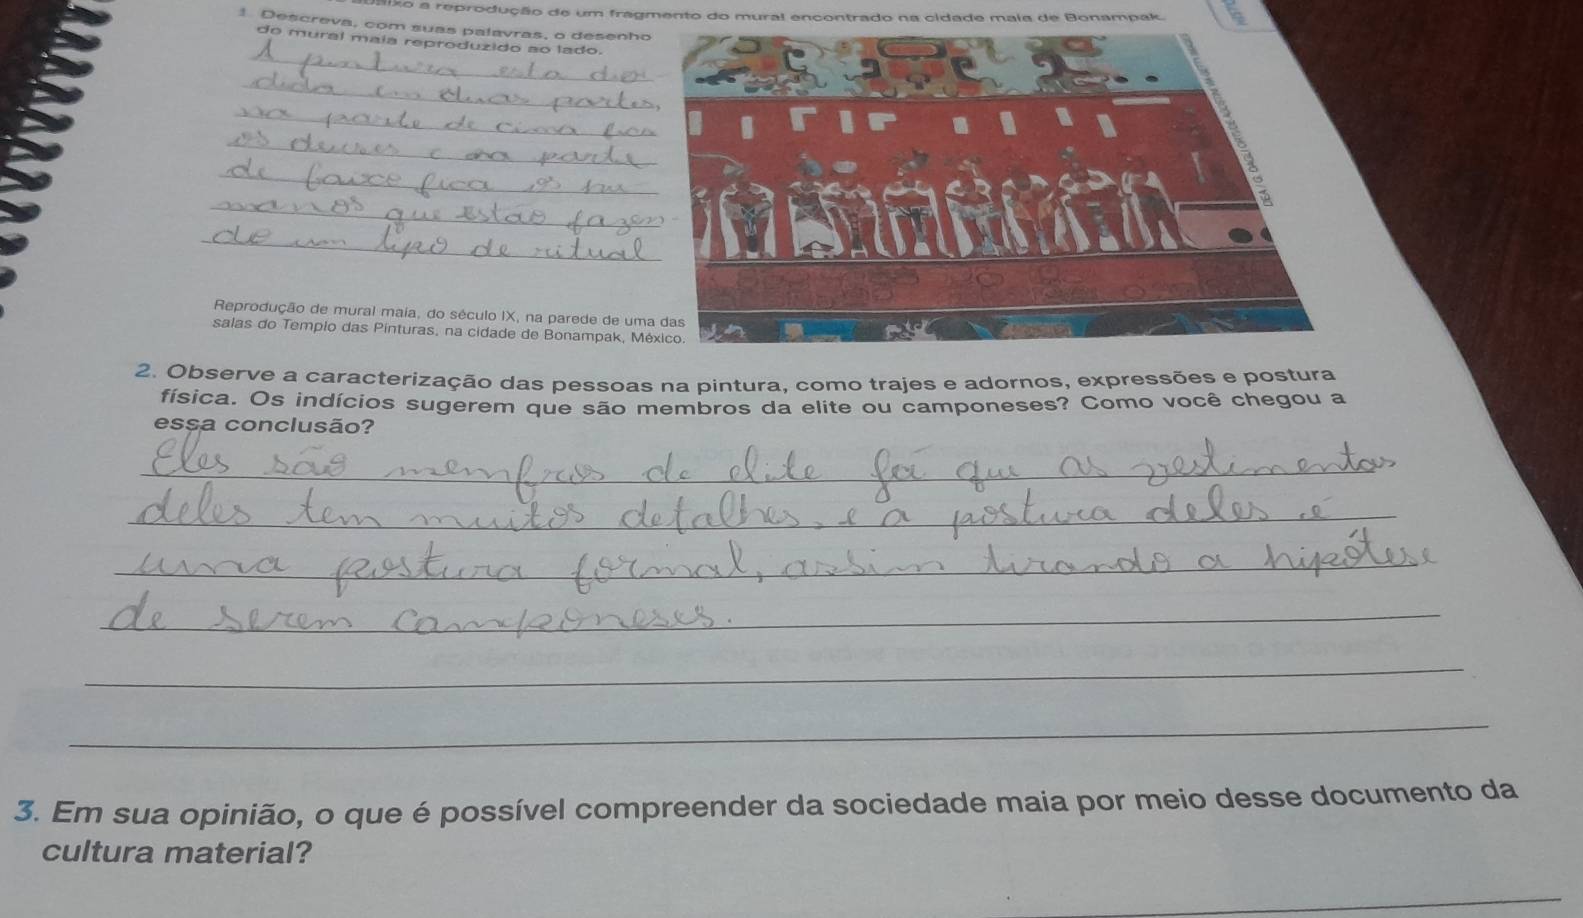 abaixo a reprodução de um fragmento do mural encontrado na cidade maia de Bonampak.
1. Descreva, com suas palavras, o desenho
do mural maia reproduzido ao lado.
A pintura esta divi
dida em duas partes,
na parte de cima fica
os deuses e na parte
de baixo fica os hu
manos que estão fazen-
do um tipo de ritual
Reprodução de mural maia, do século IX, na parede de uma das
salas do Templo das Pinturas, na cidade de Bonampak, México.
2. Observe a caracterização das pessoas na pintura, como trajes e adornos, expressões e postura
física. Os indícios sugerem que são membros da elite ou camponeses? Como você chegou a
essa conclusão?
Eles são membros da elite que as vestimentas
deles tem muitos detalhes, e a postura deles é
uma postura formal, assim tirando a hipótese
de serem camponeses.
3. Em sua opinião, o que é possível compreender da sociedade maia por meio desse documento da
cultura material?